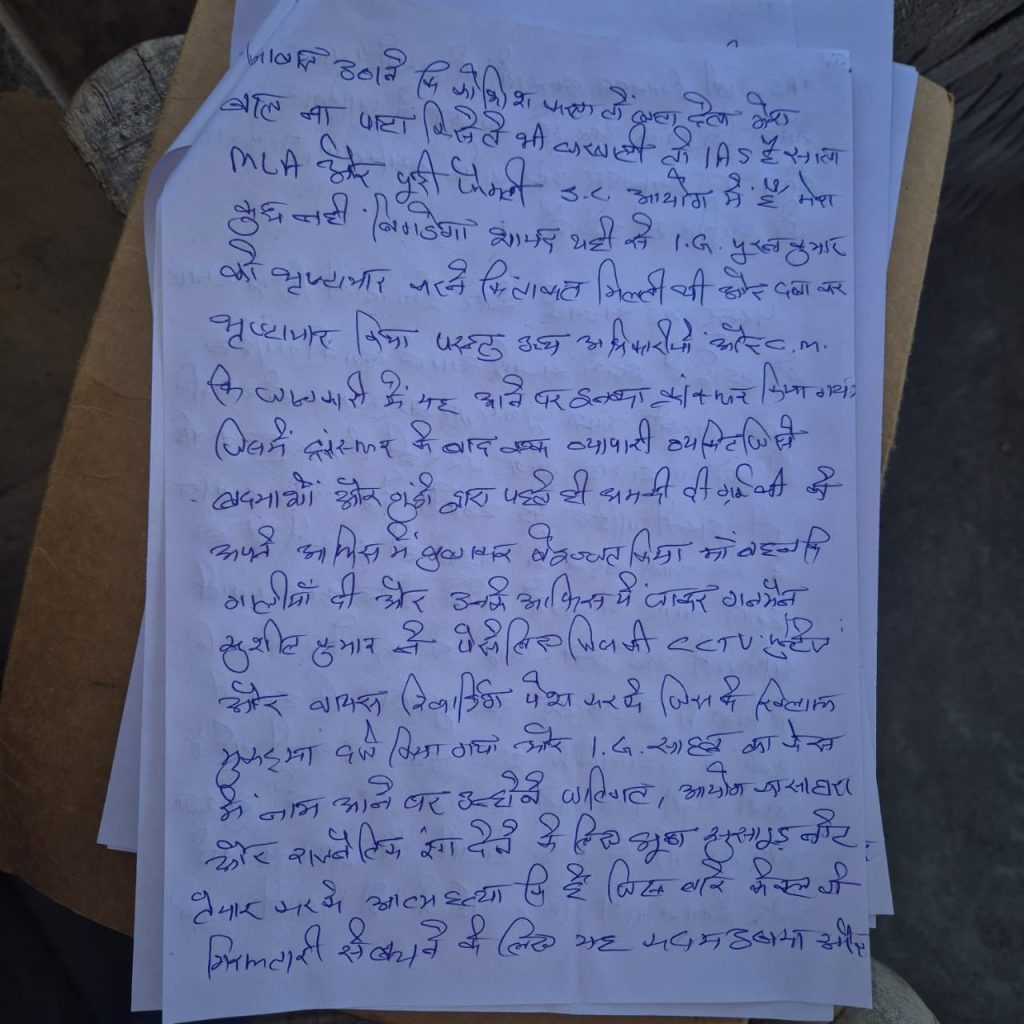 आवाज उठाने कि कोशिश करता तो कहा देता मेरा
बाल ना पाटा किसीसे भी घरवाली तो IAS है साला
MLA और पुरी फैमली S.C. आयोग में है मेरा
कुछ नही बिगडेगा शायद यही से I.G. पुरन कुमार
को भृष्टाचार करने कि ताकत मिलती थी और दबा कर
भृष्टाचार किया परन्तु उच्च अधिकारीयों और C.M.
कि जानकारी में यह आने पर इनका ट्रांसफर किया गया
जिसमें ट्रांसफर के बाद एक व्यापारी व्यक्ति जिसे
बदमाशों और गुंडो द्वारा पहले ही धमकी दी गई थी को
अपने आफिस में बुलाकर बेइज्जत किया मां बहन कि
गालीयाँ दी और उनके आफिस में जाकर गनमैन
सुशील कुमार ने पैसे लिए जिसकी CCTV फुटेज
और वायस रिकार्डिंग पेश करके जिसके खिलाफ
मुकदमा दर्ज किया गया और I.G. साहब का केस
में नाम आने पर उन्होंने जातिगत, आयोग का सहारा
और राजनैतिक रंग देने के लिए झूठा सुसाइड नोट
तैयार करके आत्महत्या कि है जिस बारे केवल
गिरफ्तारी से बचने के लिए यह कदम उठाया और